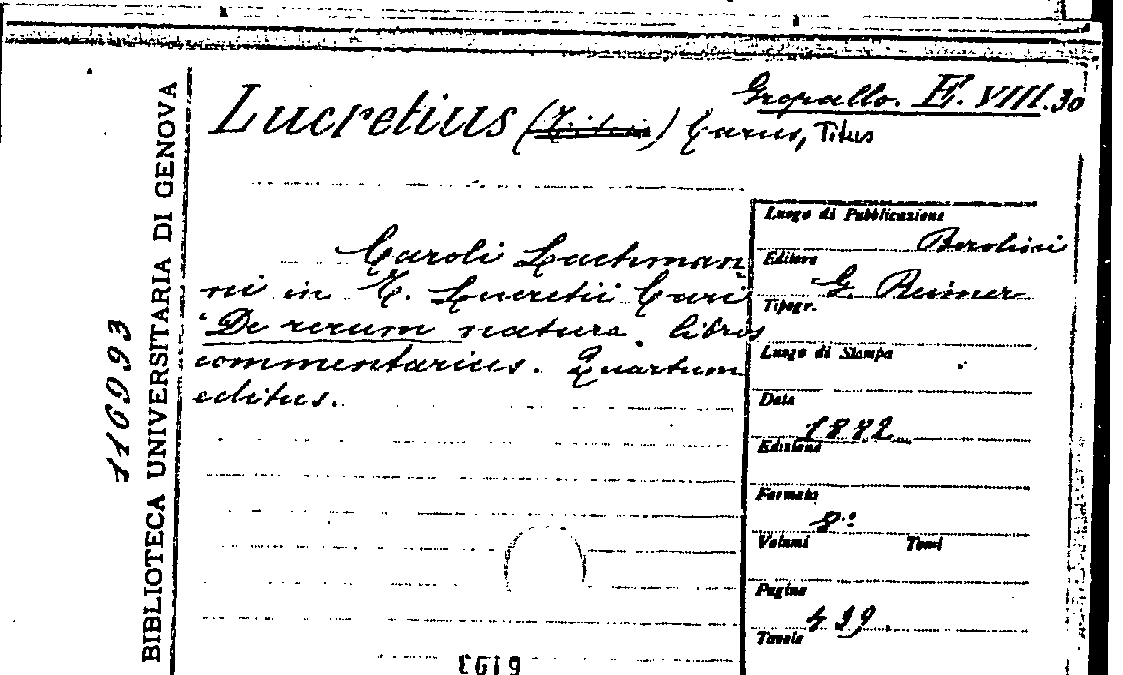 Gropallo. E. VIII. 30
Lucretius () Carus, Titus
Caroli Lachman
ni in T. Lucretii Cari
"De rerum natura" libros
commentarius. Quartum
editus.
Luogo di Pubblicazione
Berolini
Editore
G. Reimer
Tipogr.
Luogo di Stampa
Data
1882
Edizione
Formato
8°
Volumi Tomi
Pagine
439.
Tavole
BIBLIOTECA UNIVERSITARIA DI GENOVA
116993